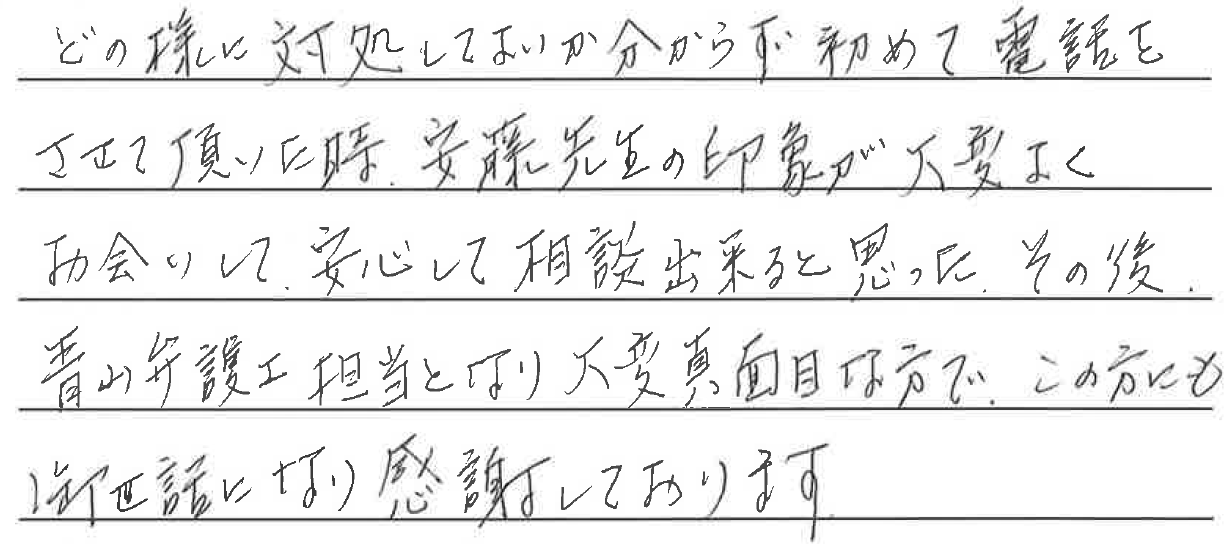 どの様に対処してよいか分からず初めて電話を
させて頂いた時、安藤先生の印象が大変よく
お会いして、安心して相談出来ると思った。その後、
青山弁護士担当となり大変真面目な方で、この方にも
御世話になり感謝しております。